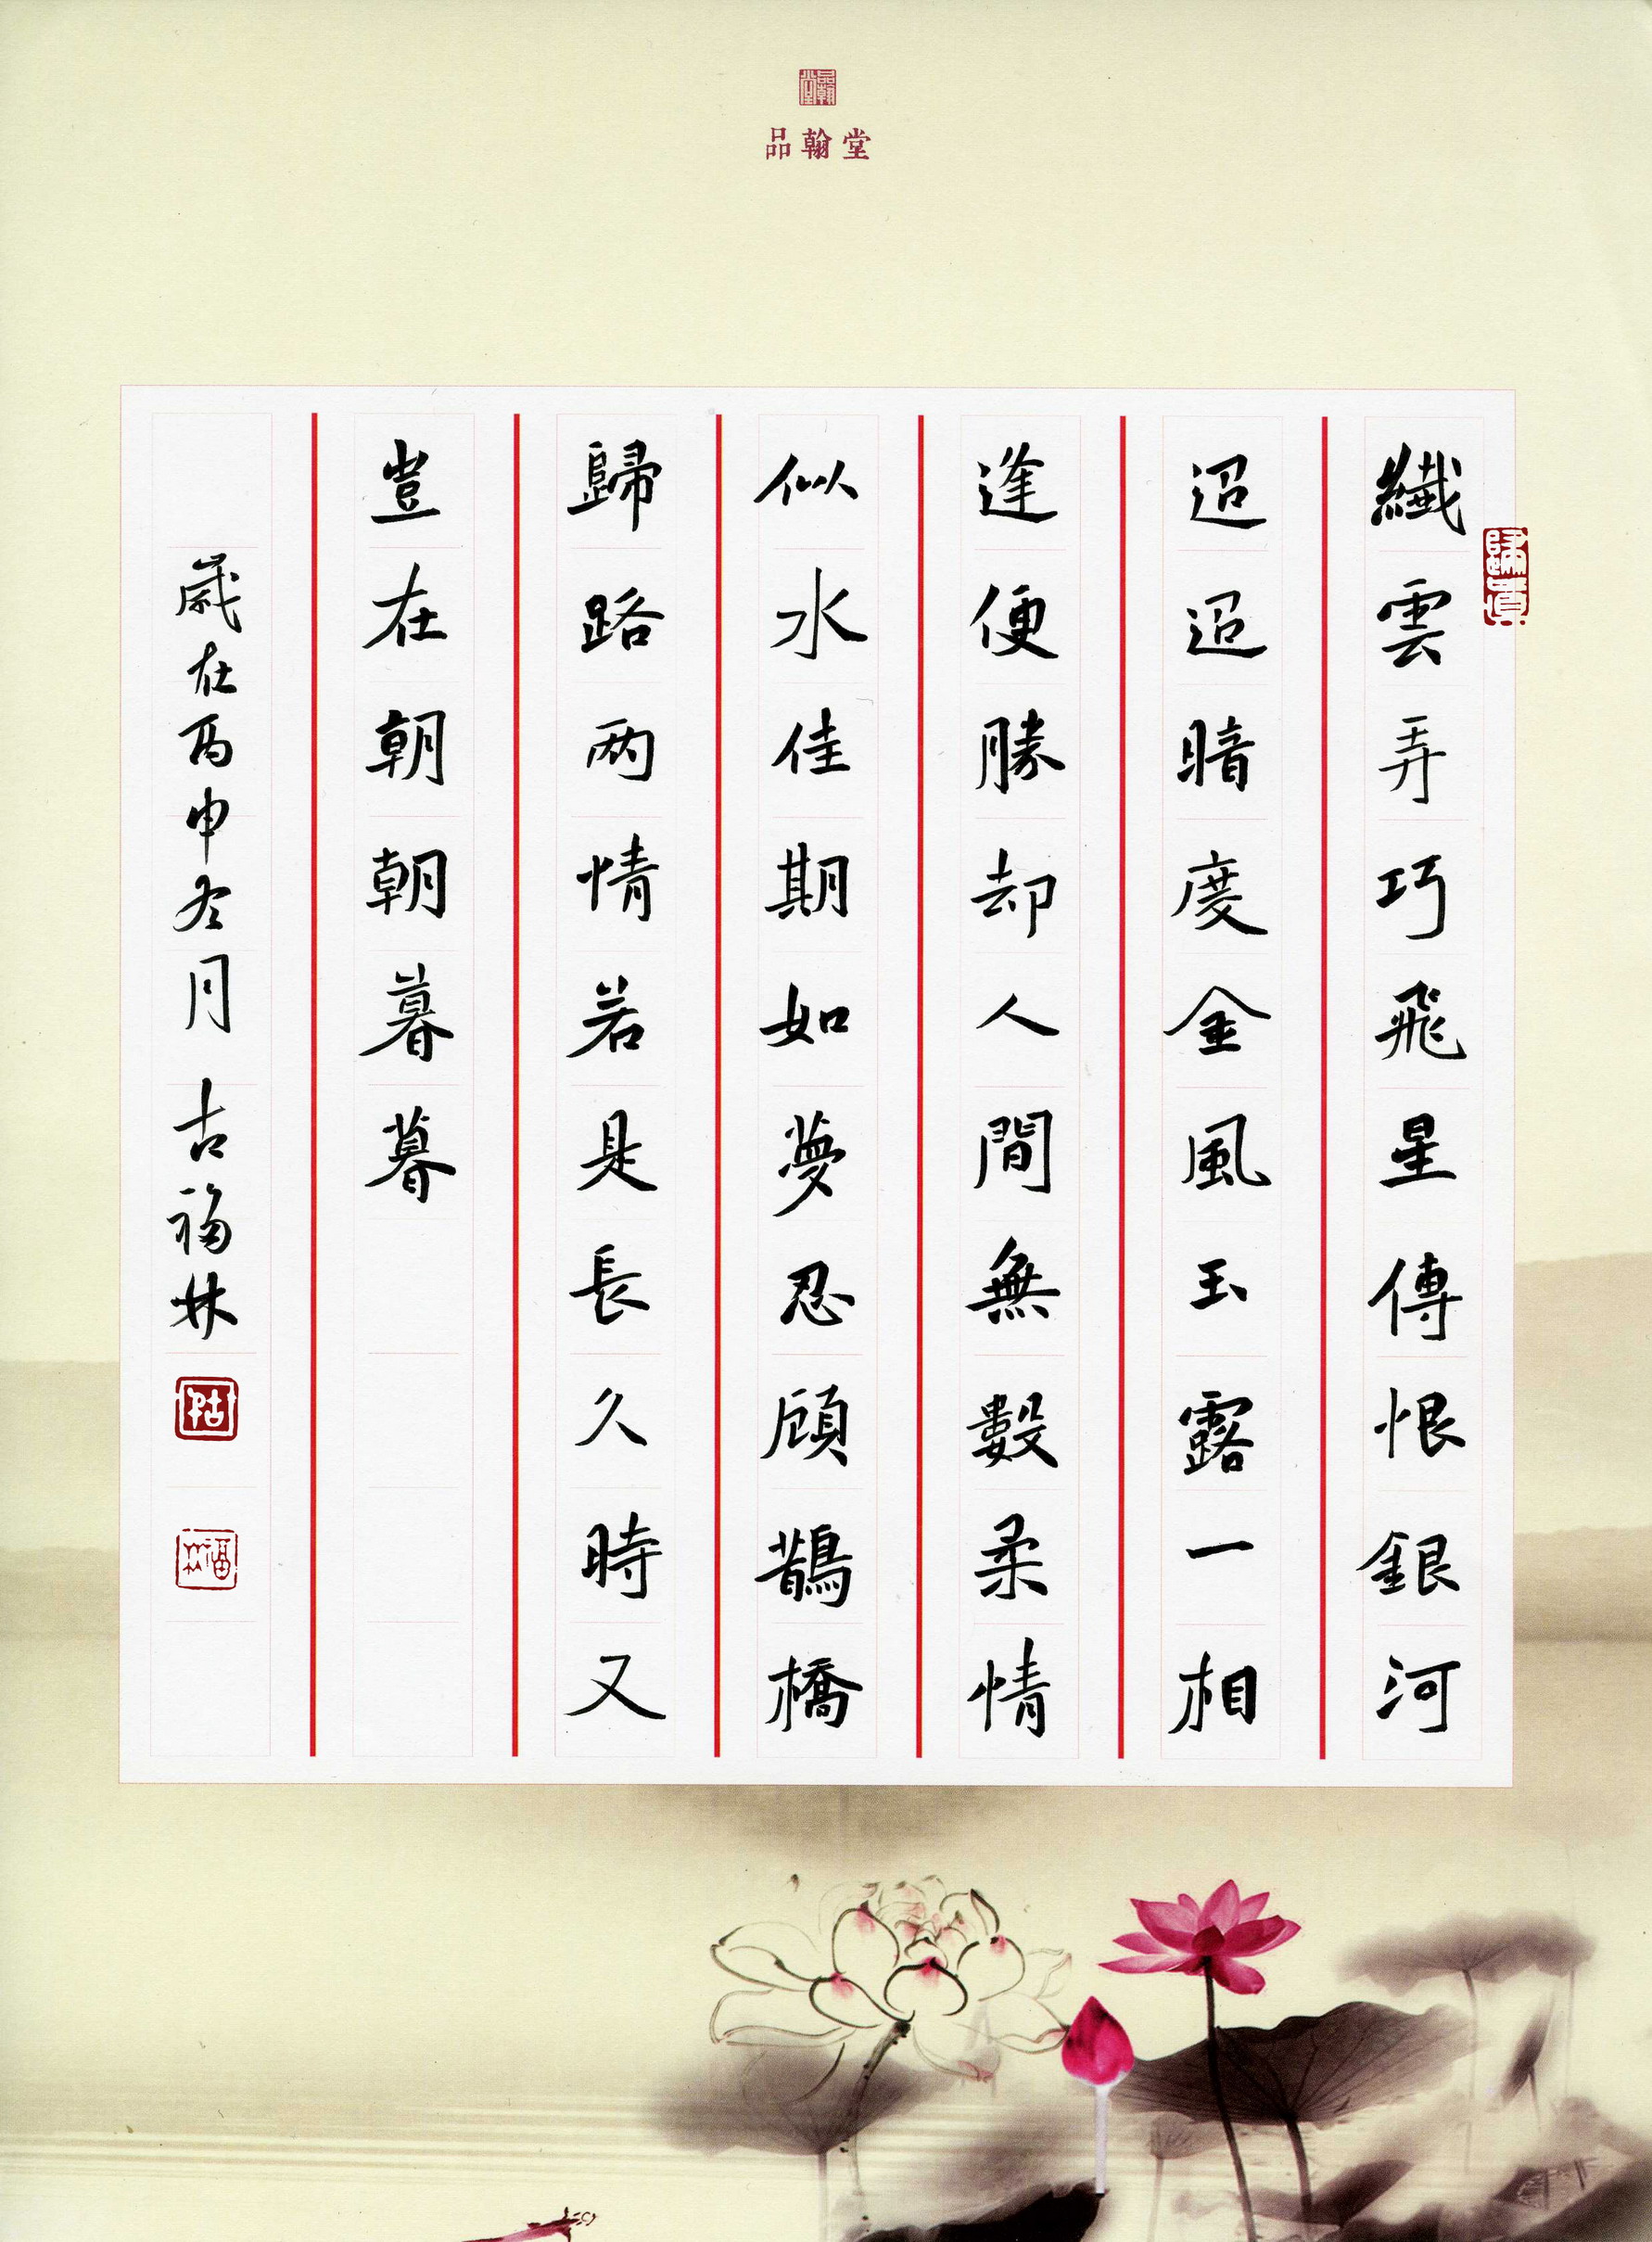 品翰堂
品翰堂
歸真
纖雲弄巧飛星傳恨銀河
迢迢暗度金風玉露一相
逢便勝却人間無數柔情
似水佳期如夢忍顧鵲橋
歸路两情若是長久時又
豈在朝朝暮暮
歲在丙申冬月 古福林
福林